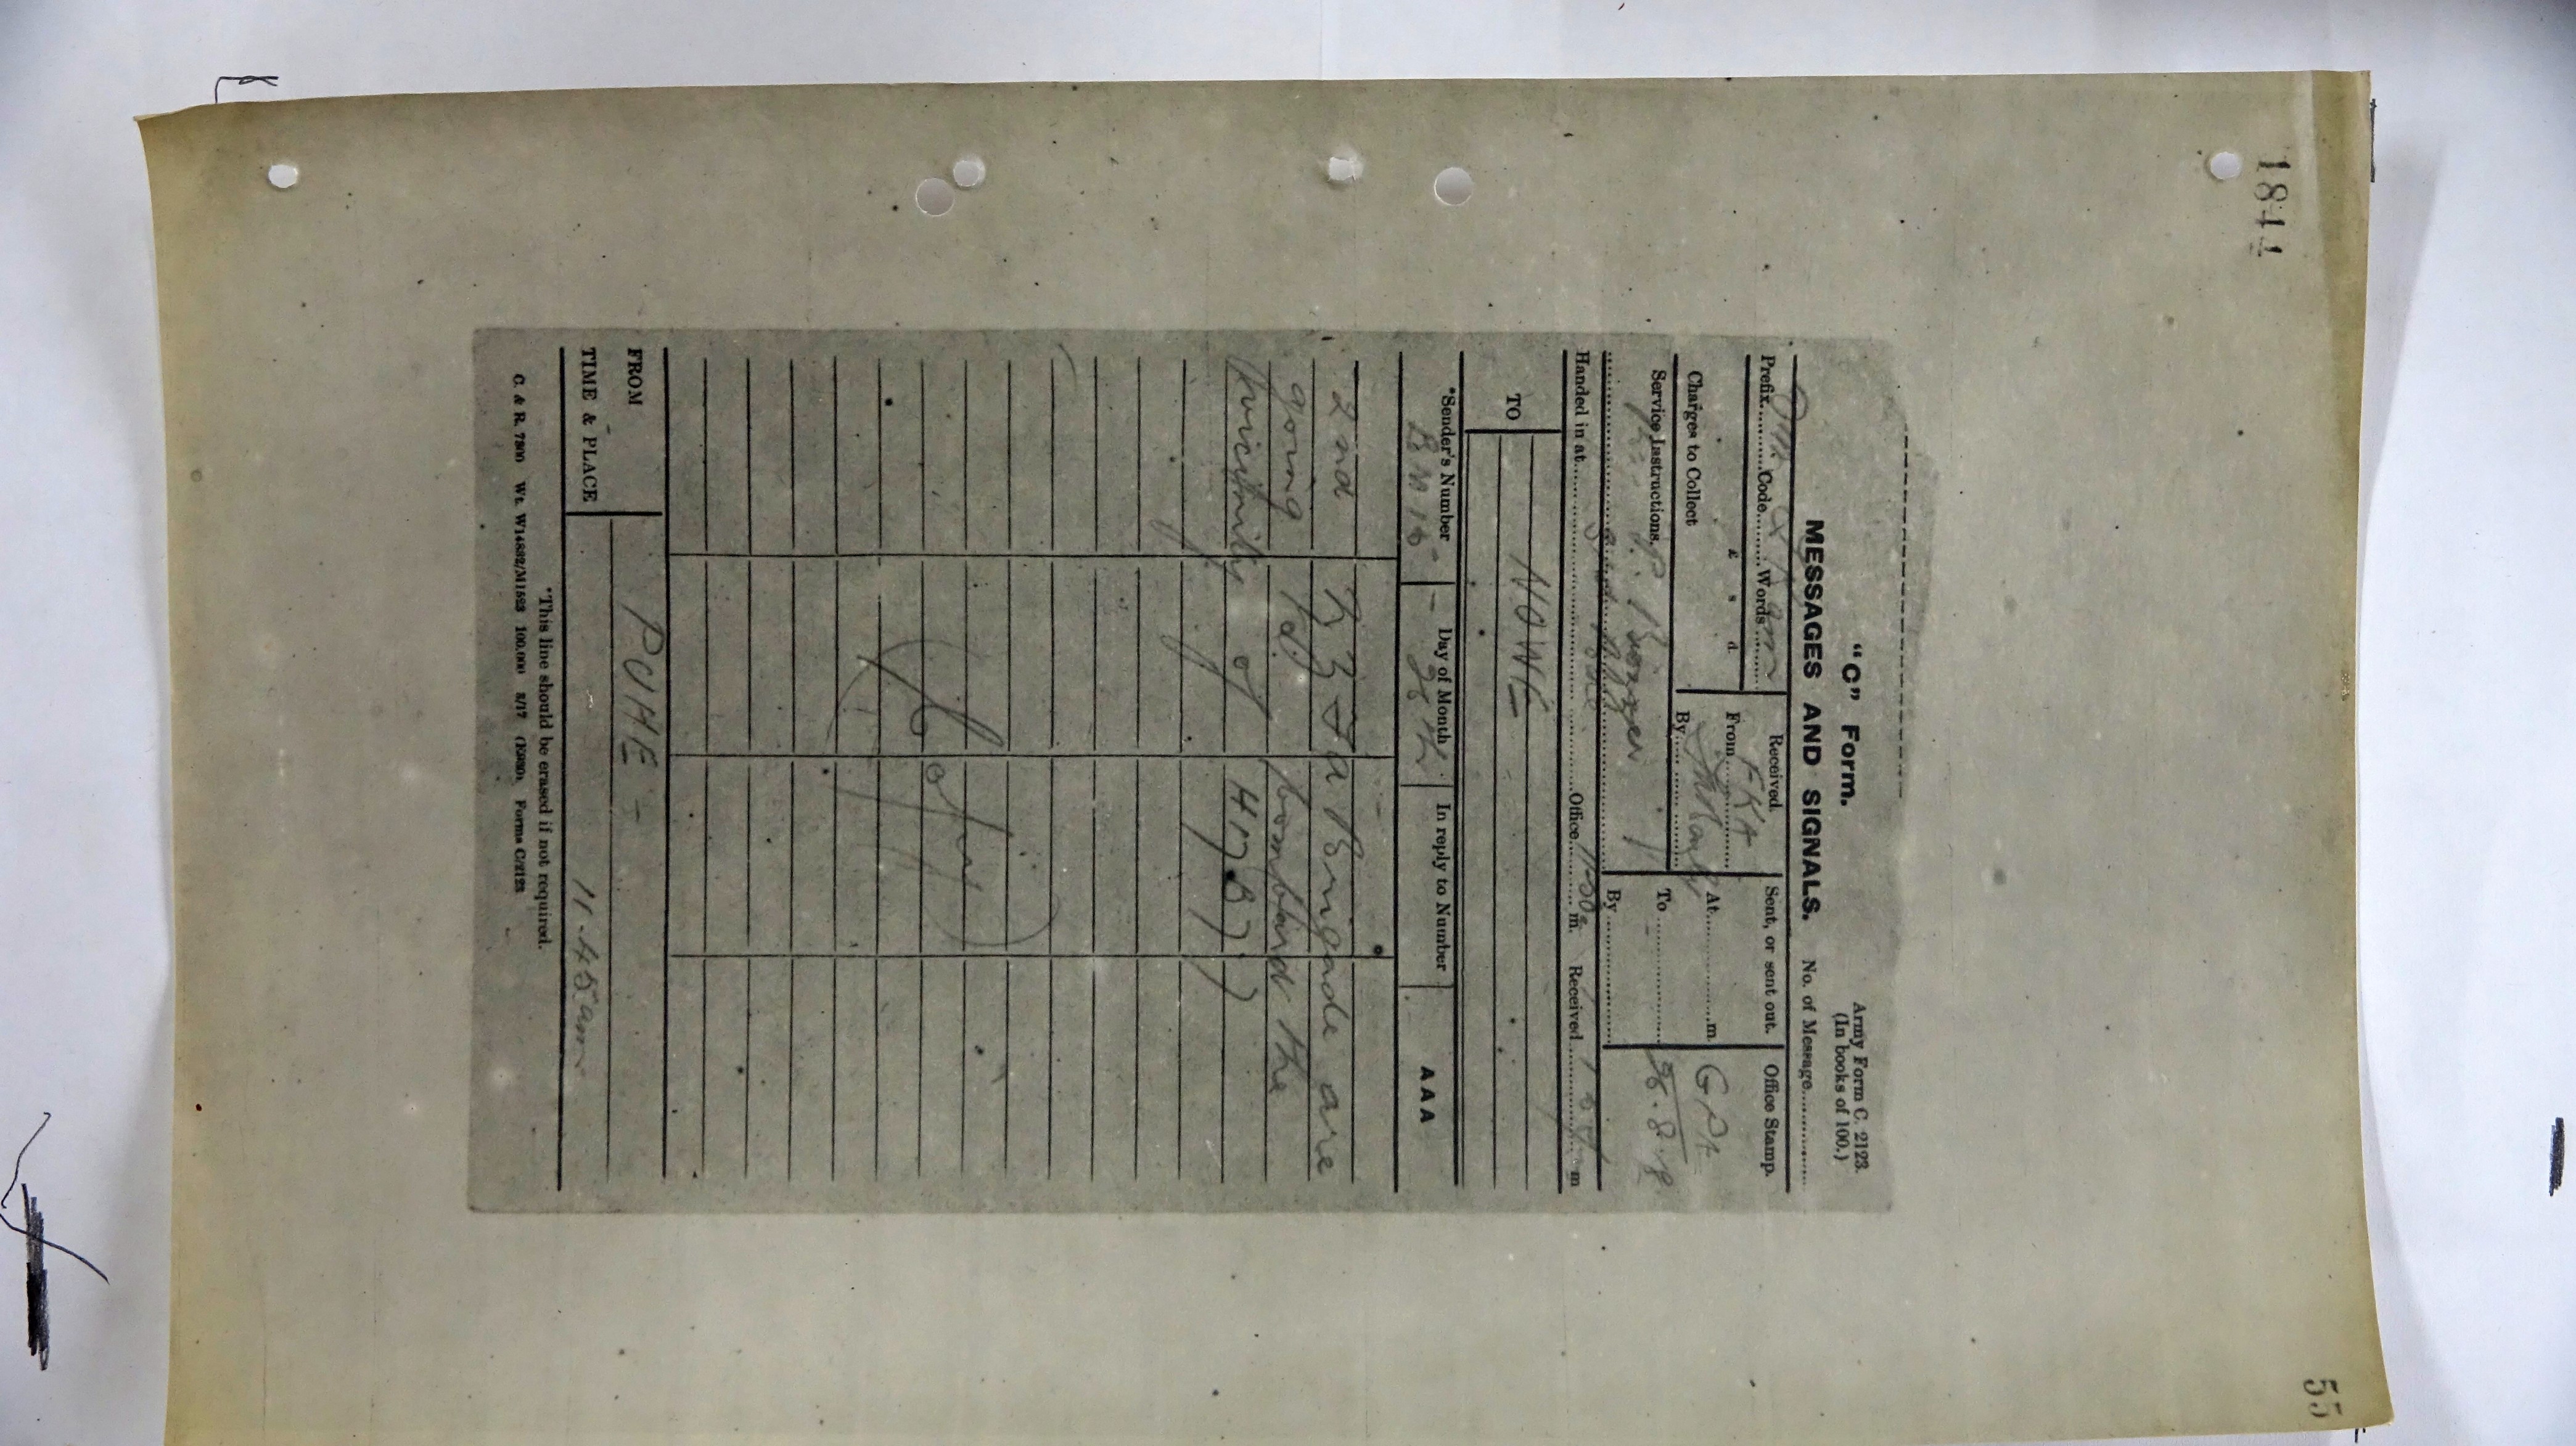 1844
"C" Form.
Army Form C. 2123.
(In books of 100.)
MESSAGES AND SIGNALS.
No. of Message............
Prefix......Code......Words......
Received.
Sent, or sent out.
Office Stamp.
£ s d.
From FKA
At............m.
GPA
Charges to Collect
By
To
26.8.18
Service Instructions.
By
Handed in at............Office 11.50a m. Received............m
TO
HOWE
*Sender's Number
Day of Month
In reply to Number
AAA
26th
2nd a Brigade are
going to bombard the
vicinity of H17B77
FROM
PUHE
TIME & PLACE
11.45am
*This line should be erased if not required.
C. & R. 7800 Wt. W14832/M1523 100,000 8/17 Forms C/2123
55